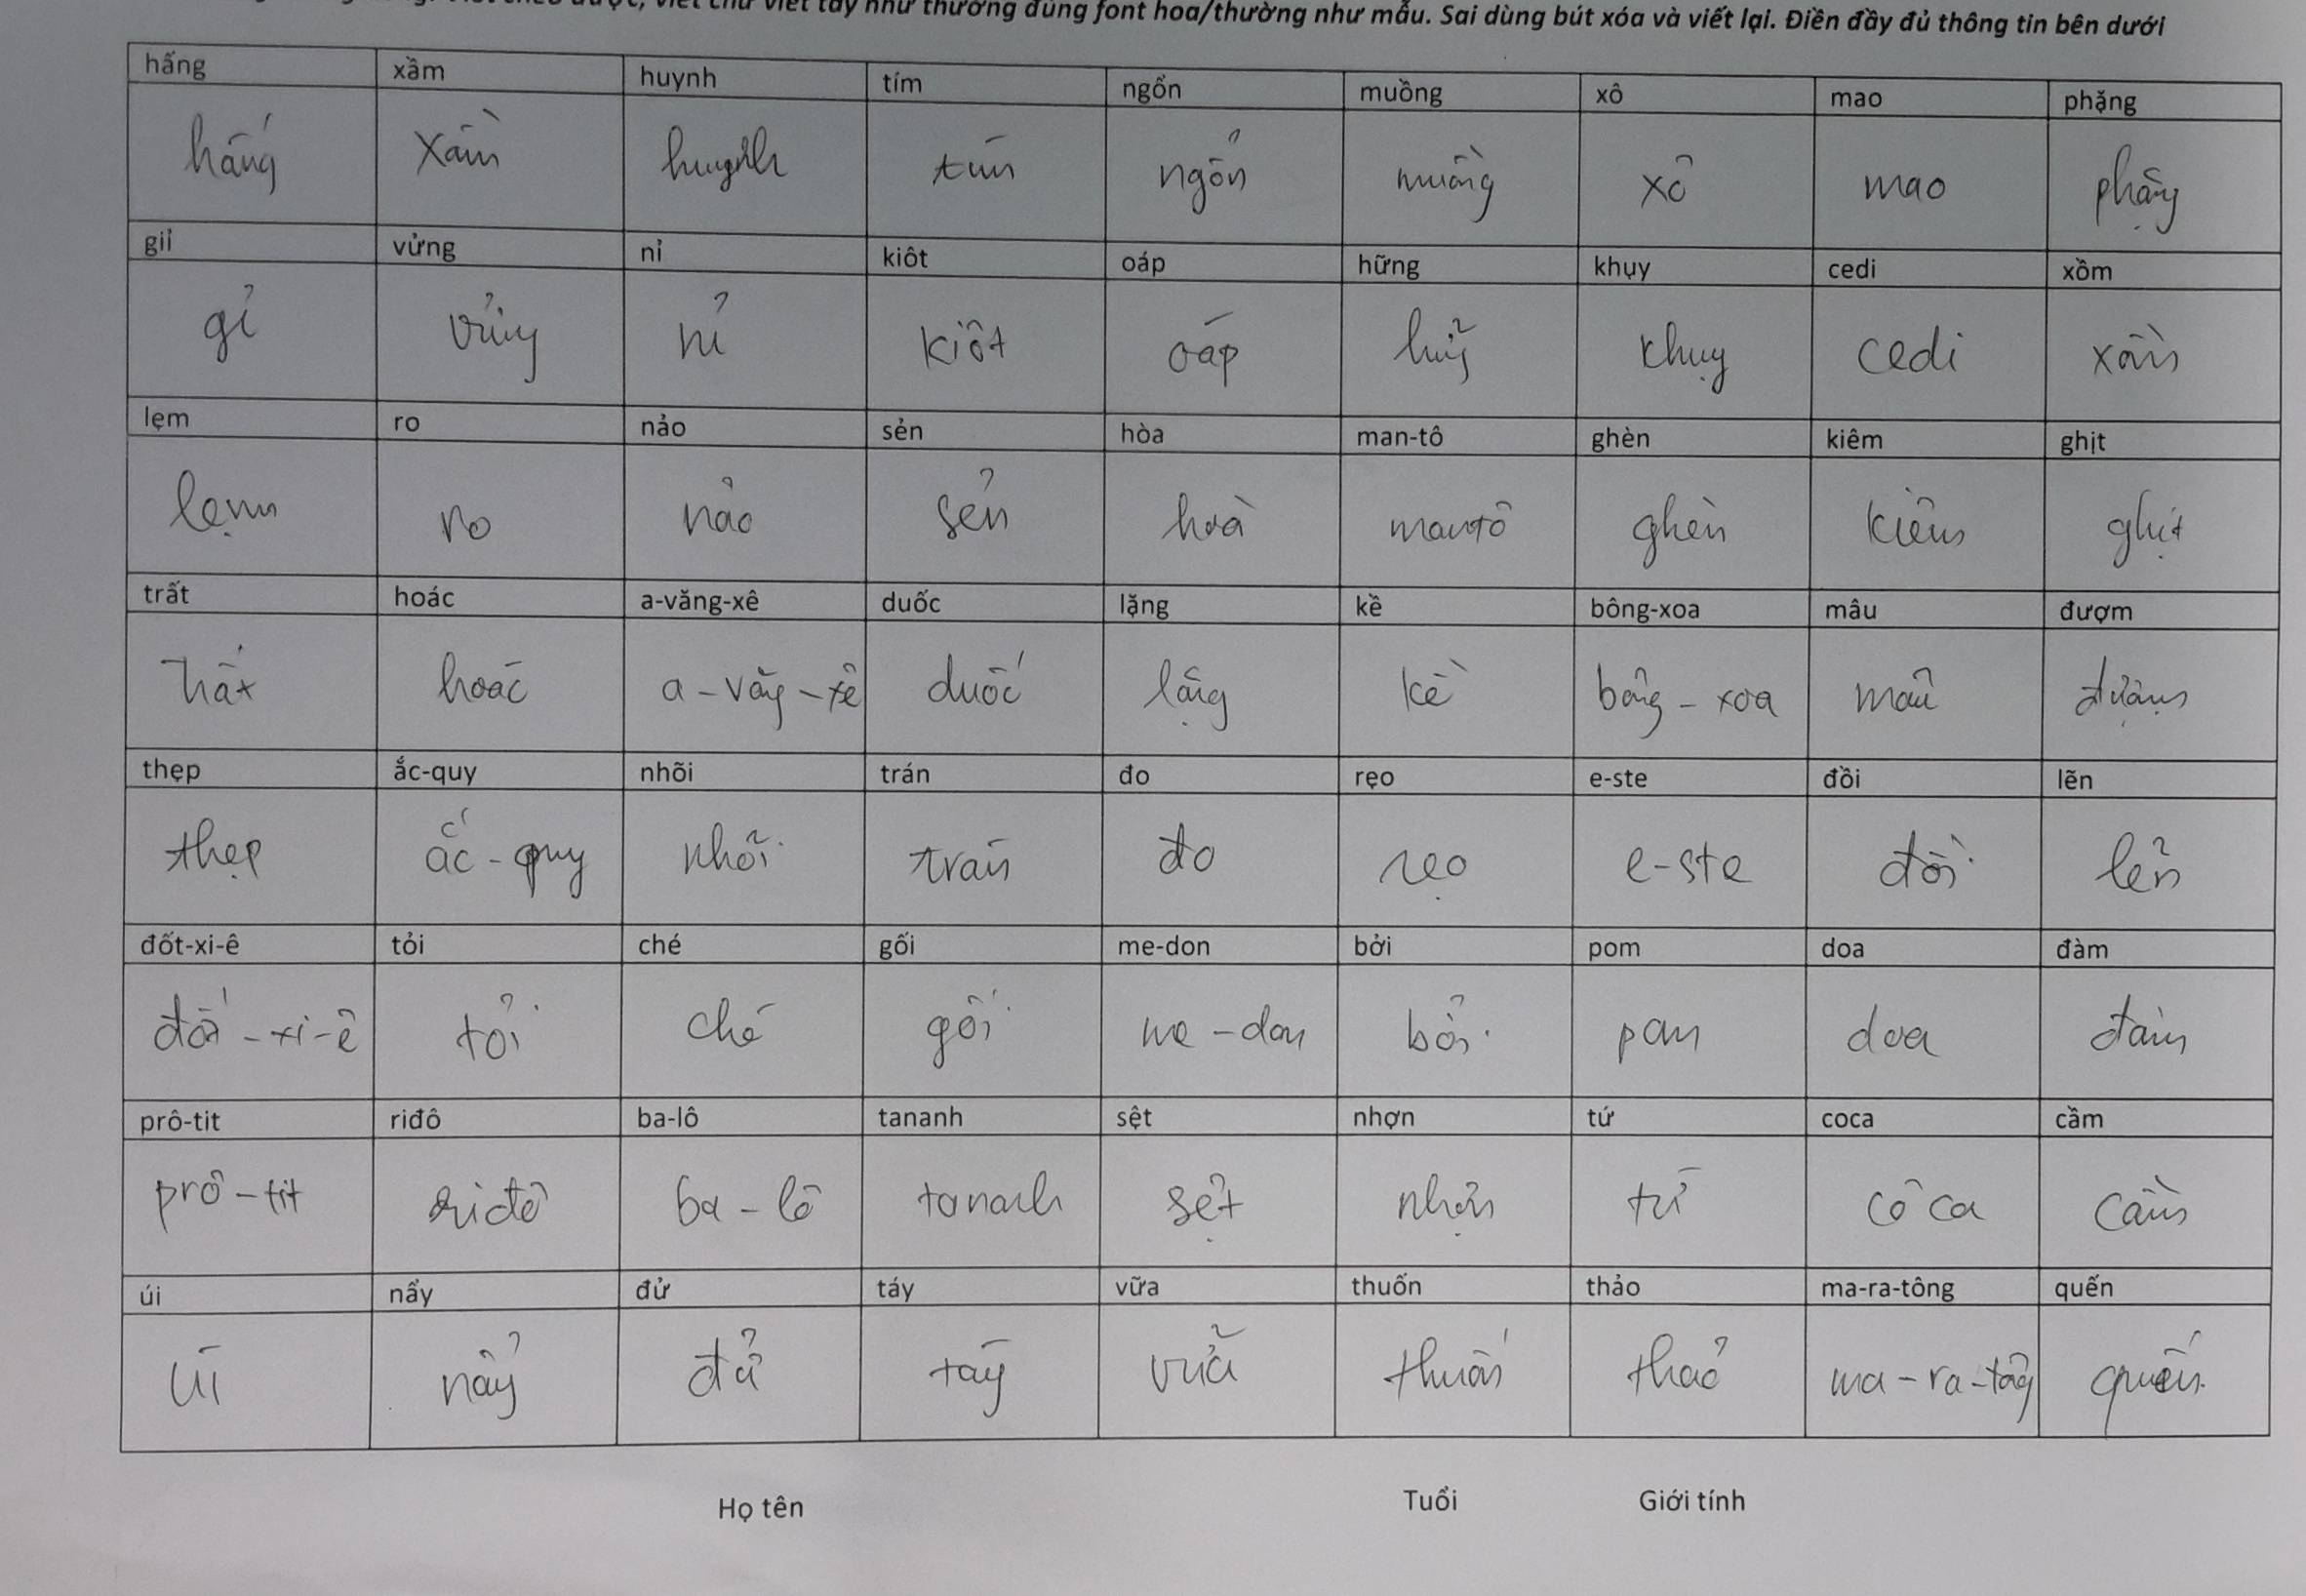 viết chữ viết tay như thường đúng font hoa/thường như mẫu. Sai dùng bút xóa và viết lại. Điền đầy đủ thông tin bên dưới
hấng xầm huynh tím ngổn muồng xô mao phặng
hấng xầm huynh tím ngổn muồng xô mao phặng
giỉ vửng nỉ kiôt oáp hững khụy cedi xồm
gỉ vửng nỉ kiôt oáp hững khụy cedi xồm
lẹm ro nảo sẻn hòa man-tô ghèn kiêm ghịt
lẹm ro nảo sẻn hoà mantô ghèn kiêm ghịt
trất hoác a-văng-xê duốc lặng kề bông-xoa mâu đượm
trất hoác a-văng-xê duốc lặng kề bông-xoa mâu đượm
thẹp ắc-quy nhõi trán đo rẹo e-ste đồi lẽn
thẹp ắc-quy nhõi trán đo rẹo e-ste đồi lẽn
đốt-xi-ê tỏi ché gối me-don bởi pom doa đàm
đốt-xi-ê tỏi ché gối me-don bởi pom doa đàm
prô-tit riđô ba-lô tananh sệt nhợn tứ coca cầm
prô-tit riđô ba-lô tananh sệt nhợn tứ cô ca cầm
úi nẩy đử táy vữa thuốn thảo ma-ra-tông quến
úi nẩy đử táy vữa thuốn thảo ma-ra-tông quến
Họ tên Tuổi Giới tính